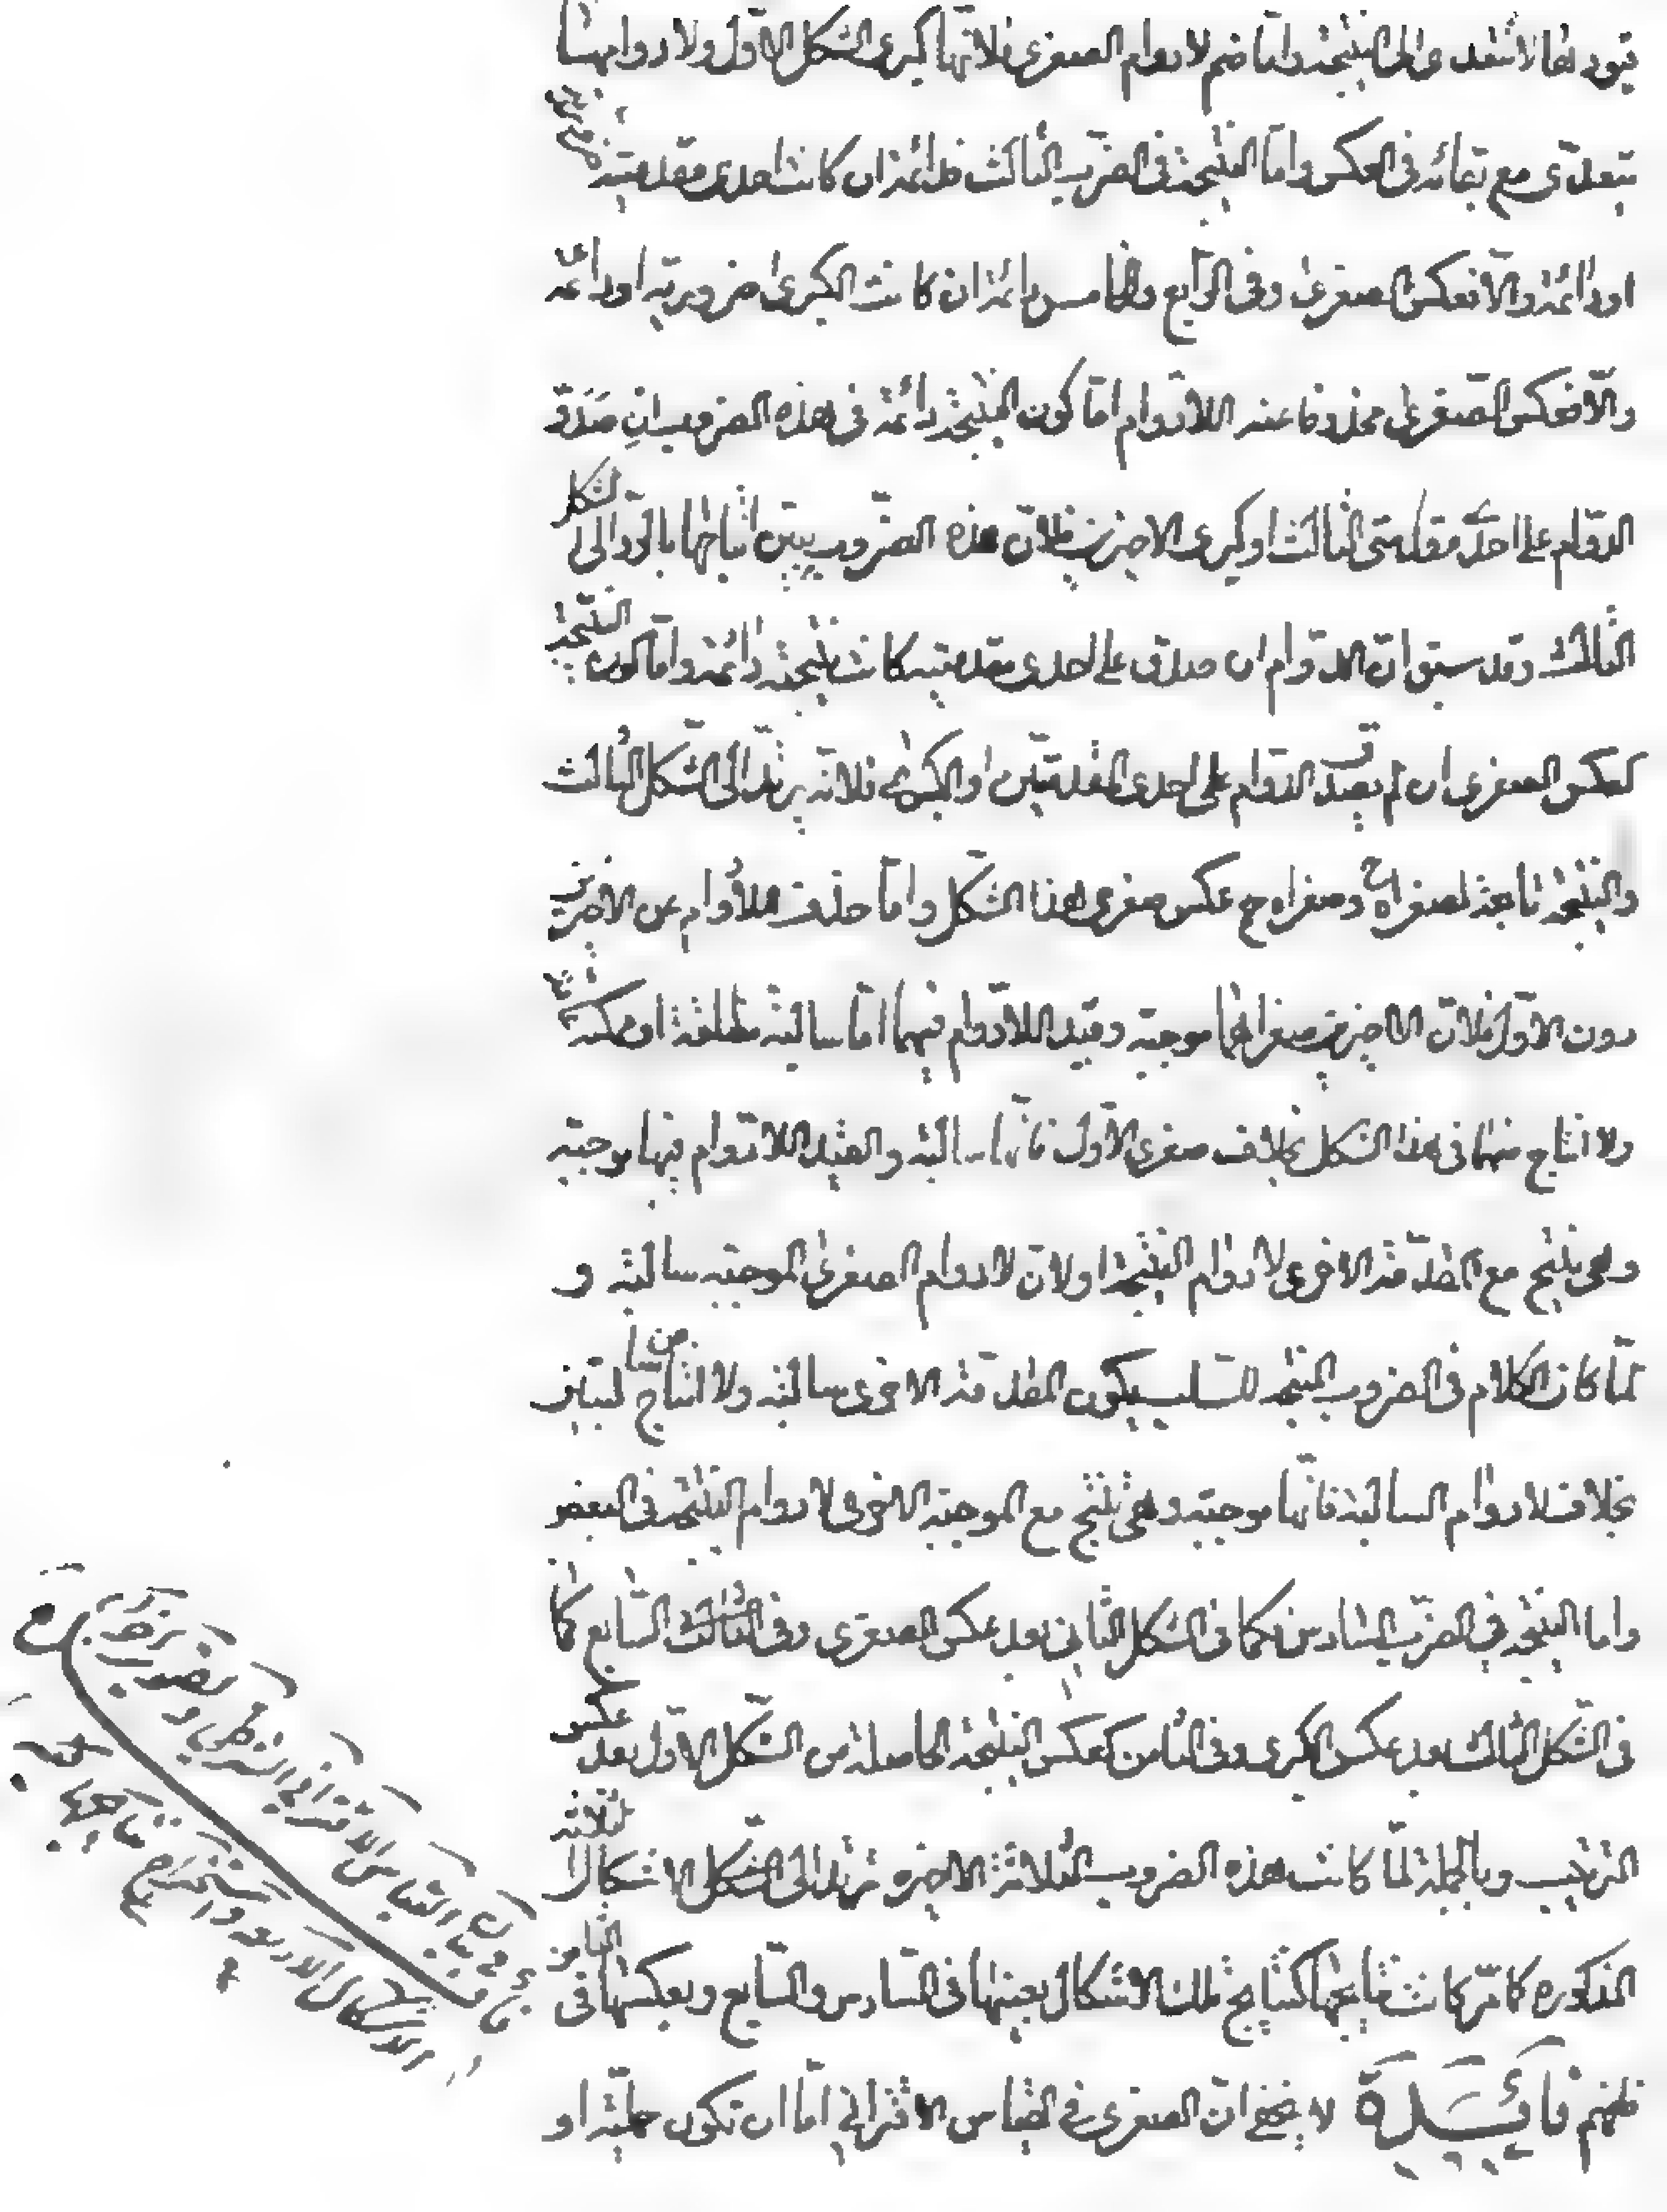 قيودها لا تتعدى الى النتيجة واما ضم لا دوام الصغرى فلانها كبرى الشكل الاول ولا دوامها
تتعدى مع بقائه في العكس واما النتيجة في الضرب الثالث فدائمة ان كانت احدى مقدمتيه ضرورية
او دائمة والا فعكس الصغرى وفي الرابع والخامس دائمة ان كانت الكبرى ضرورية او دائمة
والا فعكس الصغرى محذوفا عنه اللادوام اما كون النتيجة دائمة في هذه الضروب ان صدق
الدوام على احدى مقدمتي الثالث او كبرى الاخيرين فلان هذه الضروب يبين انتاجها بالرد الى الشكل
الثالث وقد سبق ان الدوام ان صدق على احدى مقدمتيه كانت نتيجته دائمة واما كون النتيجة
كعكس الصغرى ان لم يصدق الدوام على احدى المقدمتين او الكبرى فلانه يرتد الى الشكل الثالث
والنتيجة تابعة لصغراه ح وصغراه ح عكس صغرى هذا الشكل واما حذف اللادوام من الاخيرين
دون الاول فلان الاخيرين صغراهما موجبة وقيد اللادوام فيهما اما سالبة مطلقة او ممكنة عامة
ولا انتاج منهما في هذا الشكل بخلاف صغرى الاول فانها سالبة والقيد اللادوام فيها موجبة
وهي ينتج مع المقدمة الاخرى لا دوام النتيجة او لان لا دوام الصغرى الموجبة سالبة و
لما كان الكلام في الضروب المنتجة للسلب يكون المقدمة الاخرى سالبة ولا انتاج من سالبتين
بخلاف لا دوام السالبة فانها موجبة وهي تنتج مع الموجبة الاخرى لا دوام النتيجة في البعض
واما النتيجة في الضرب السادس فكما في الشكل الثاني بعد عكس الصغرى وفي الثالث السابع كما
في الشكل الثالث بعد عكس الكبرى وفي الثامن كعكس النتيجة الحاصلة من الشكل الاول بعد عكس
الترتيب وبالجملة لما كانت هذه الضروب الثلاثة الاخيرة ترتد الى الشكل الاشكال الثلاثة
المذكورة كما مر كانت نتايجها كنتايج تلك الاشكال بعينها في السادس والسابع وبعكسها في الثامن
فافهم فائدة لا يخفى ان الصغرى في القياس الاقتراني اما ان تكون حملية او
فائدة في بيان القياس الاقتراني الشرطي
الاشكال الاربعة واستخراج نتايجها